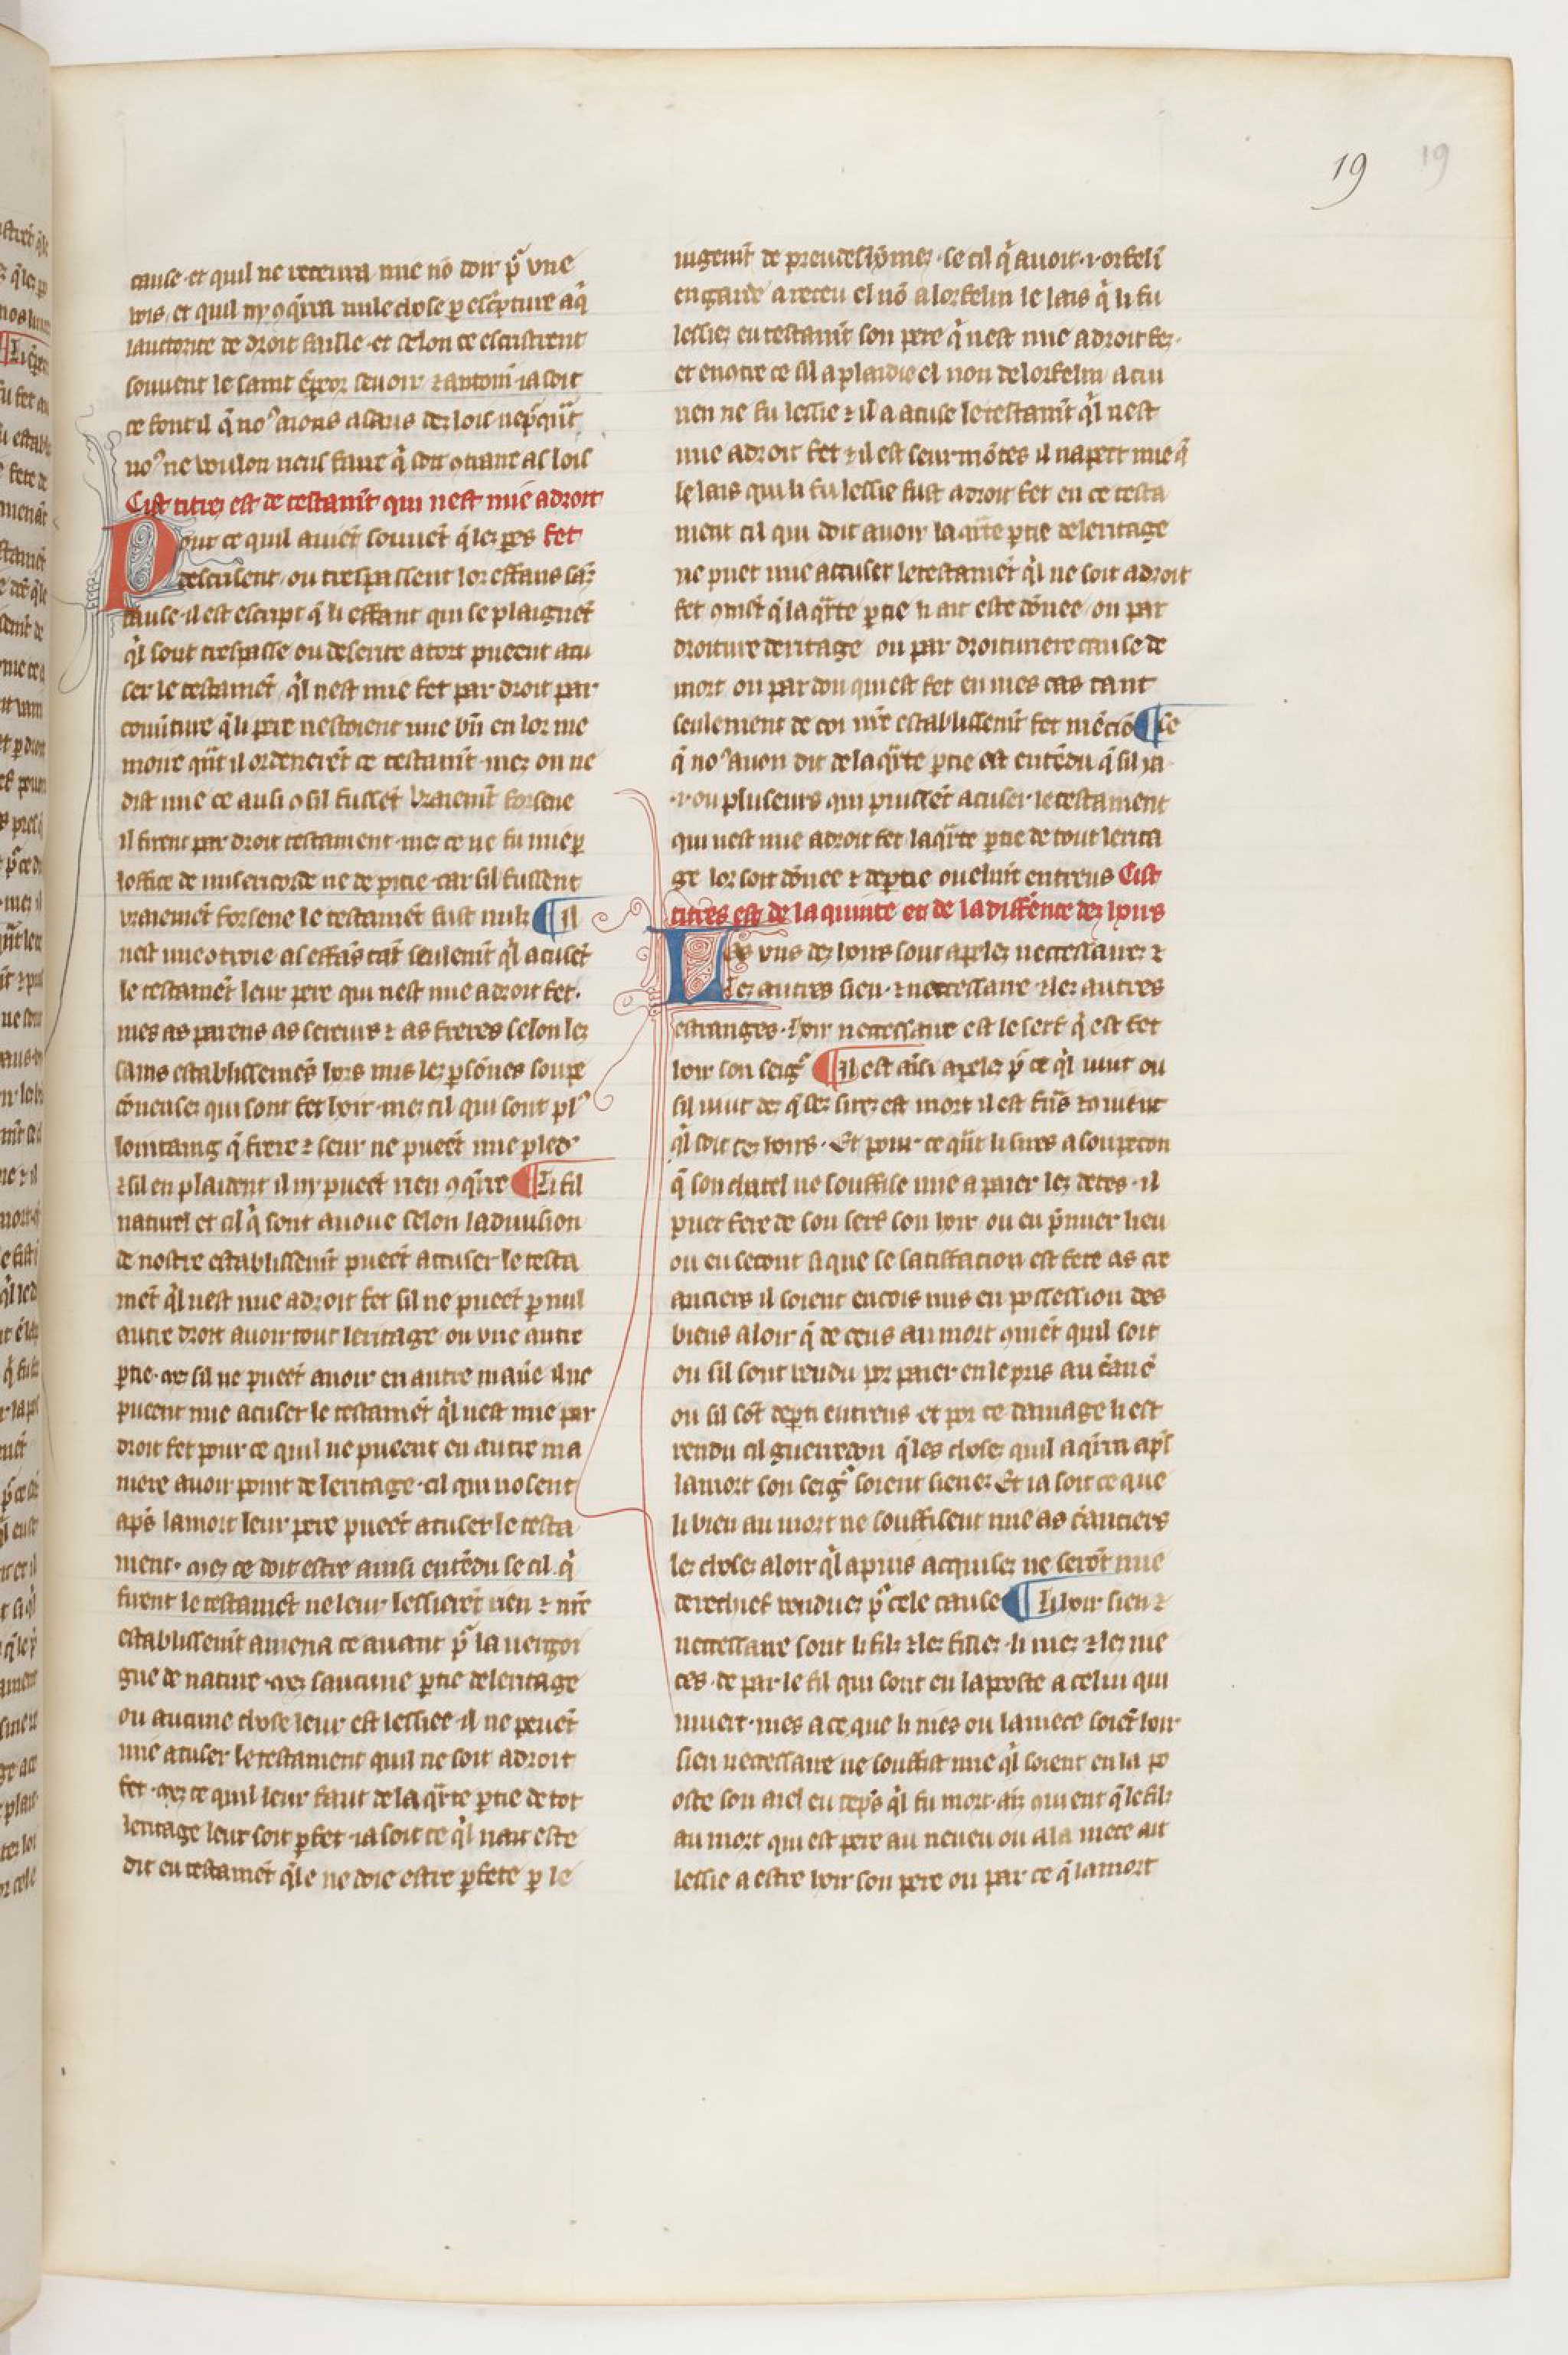 19 19
cause · et quil ne receura mie nō doir pͬ vne
vois · et quil ny ꝯq̄rra nule chose ꝑ escͥpture a q̄
lauctorite de droit faille · et selon ce escristrent
souuent le saint ēꝑeor seuoir ⁊ antoni · ia soit
ce font il q̄ noꝰ aions asaus dez lois nepq̄ᵃt
noꝰ ne voulon neus faire q̄ soit ꝯtraire as lois
Cist titrez est de testam̄t qui nest mie adroit
Pour ce quil auiēt souuēt q̄ lez ꝑes fet
desciisent ou trespassent lor effans sāz
cause · il est escript q̄ li effant qui se plaignēt
qͥl sont trespasse ou deserite a tort pueent acu
ser le testamēt qͥl nest mie fet par droit par
couuture q̄ li pere nestoient mie bn̄ en lor me
moire qn̄t il ordenerēt ce testam̄t · mez on ne
dist mie ce ausi ꝯ sil fussēt vraiem̄t forsene
il firent par droit testament · mez ce ne fu mie ꝑ
loffice de misericorde ne de pitie · car sil fussent
vraiemēt forsene le testamēt fust nulz ¶ Il
nest mie otroie as effās tāt seulem̄t qͥl acusēt
le testamēt leur pere qui nest mie adroit fet ·
mes as parens as sereurs ⁊ as freres selon lez
sains establissemēs hors mis lez ꝑsōnes soupe
cōneusez qui sont fet hoir · mez cil qui sont plꝰ
lointaing q̄ frere ⁊ seur ne pueēt mie pled̾
⁊ sil en plaident il ny pueēt rien ꝯq̄rre ¶ Li fil
naturel et cil qͥ sont auoue selon la diuision
de nostre establissem̄t pueēt accuser le testa
mēt qͥl nest mie adroit fet sil ne pueēt ꝑ nul
autre droit auoir tout leritage ou vne autre
ꝑtie · mez sil ne pueēt auoir en autre maīe il ne
pueent mie acuser le testamēt qͥl nest mie par
droit fet pour ce quil ne pueent en autre ma
niere auoir point de leritage · cil qui nosent
apͬs la mort leur pere pueēt acuser le testa
ment · mez ce doit estre ainsi entēdu se cil qͥ
firent le testamēt ne leur lessierēt rien ⁊ nr̄e
establissem̄t amena ce auant pͬ la uergoi
gne de nature · mez saucune ꝑtie de leritage
ou aucune chose leur est lessiee il ne peuēt
mie acuser le testament quil ne soit adroit
fet · mez ce quil leur faut de la qͣrte ꝑtie de tot
leritage leur soit ꝑfet · ia soit ce qͥl nait este
dit en testamēt qͥle ne doie estre ꝑfete ꝑ le
iugem̄t de preudeshōmez · se cil qͥ auoit · i · orfeli
en garde a receu el nō a lorfelin le lais qͥ li fu
lessiez en testam̄t son pere qͥ nest mie adroit fez ·
et en otre ce sil a plaidie el non de lorfelin a cui
rien ne fu lessie ⁊ il a acuse le testam̄t qͥl nest
mie adroit fet ⁊ il est seurmōtes il napert mie q̄
le lais qui li fu lessie fust adroit fet en ce testa
ment cil qui doit auoir la qͣrte ꝑtie de leritage
ne puet mie accuser le testamēt qͥl ne soit adroit
fet ꝯmēt q̄ la qͣrte ꝑtie li ait este dōnee ou par
droiture deritage ou par droituriere cause de
mort ou par don qui est fet en mes cas tant
seulement de coi nr̄e establissem̄t fet mēciō ¶ Ce
q̄ noꝰ auon dit de la qͣrte ꝑtie est entēdu q̄ sil ya
· i · ou pluseurs qui puissēt acuser le testament
qui nest mie adroit fet la qͣrte ꝑtie de tout lerita
ge lor soit dōnee ⁊ deꝑtie ouelm̄t entreus Cist
titres est de la quinte et de la diffēnce dez hoirs
Les vns dez hoirs sont apelez neccessairez ⁊
lez autres sien · ⁊ neccessaire ⁊ lez autres
estranges · hoir neccessaire est le serf qͥ est fet
hoir son seigͬ ¶ Il est aīsi apelez pͬ ce qͥl uiut ou
sil uiut dez q̄ sez sirez est mort il est frās touteuc
qͥl soit ces hoirs · Et pour ce qn̄t li sires a soupecon
q̄ son chatel ne souffise mie a paier lez detes · il
puet fere de son serf son hoir · ou en p̄mier lieu
ou en secont si que se satiffacion est fete as cre
anciers il soient encois mis en possession des
biens a loir q̄ de ceus au mort ꝯmēt quil soit
ou sil sont rendu por paier en le pris au cāncē
ou sil sōt deꝑti entreus et por ce damage li est
rendu cil guerredon q̄ les chosez quil aqͥrra apͬs
la mort son seigͬ soient sienez Et ia soit ce que
li bien au mort ne souffisent mie as cāncierrs
lez chosez a loir qͥl a puis acquisez ne serōt mie
derechief vendues pͬ cele cause ¶ Li hoir sien ⁊
neccessaire sont li filz ⁊ lez fillez · li niez ⁊ lez nie
ces · de par le fil qui sont en la poste a celui qui
muert · mes a ce que li nies ou la niece soiēt hoir
sien neccessaire ne souffist mie qͥl soient en la po
oste son aiel en teps̄ qͥl fu mort · aīz ꝯuient q̄ le filz
au mort qui est pere au neueu ou a la niece ait
lessie a estre hoir son pere ou par ce q̄ la mort